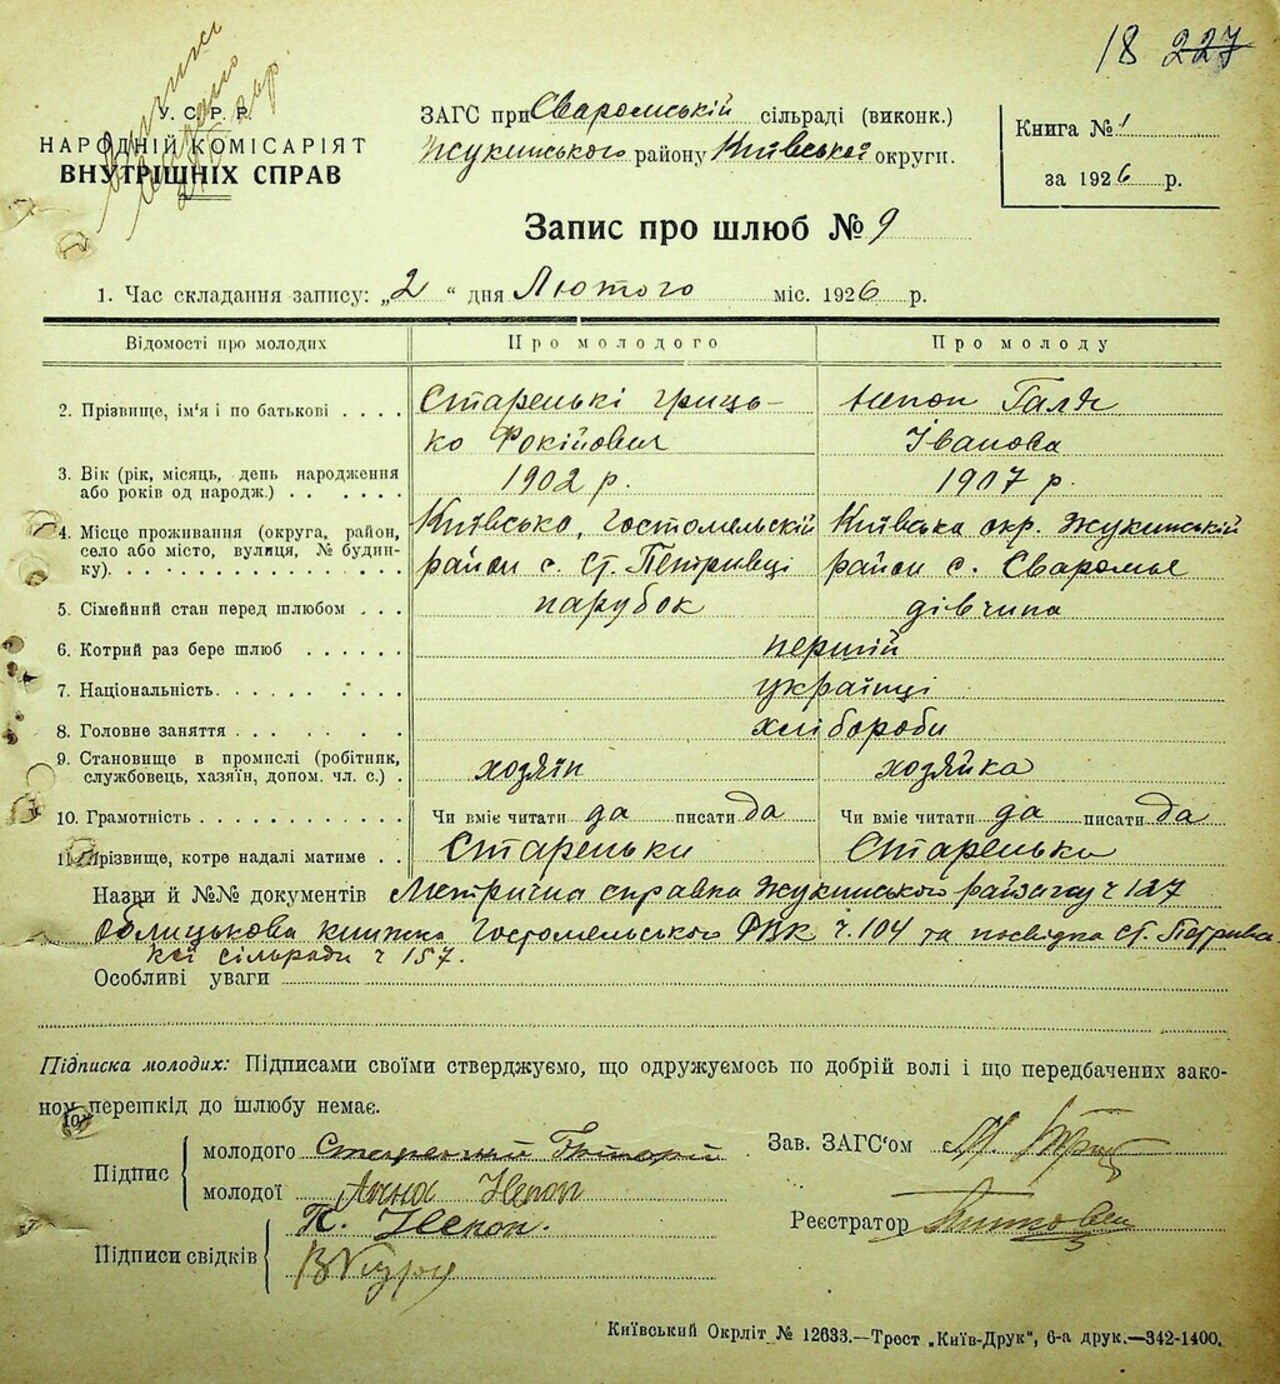 18 227
У. С. Р. Р.
НАРОДНІЙ КОМІСАРІЯТ
ВНУТРІШНІХ СПРАВ
ЗАГС при Сваромській сільраді (виконк.)
Жукинського району Київської округи.
Книга № 1
за 1926 р.
Запис про шлюб № 9
1. Час складання запису: „2“ дня Лютого міс. 1926 р.
Відомості про молодих Про молодого Про молоду
2. Прізвище, ім'я і по батькові . . . . Старенькі Гриць- Непоп Галя
ко Фокійович Іванова
3. Вік (рік, місяць, день народження або років од народж.) 1902 р. 1907 р.
4. Місце проживання (округа, район, Київсько, Гостомельскій Київська окр. Жукинській
село або місто, вулиця, № будин-ку). район с. Ст. Петрівці район с. Сваромье
5. Сімейний стан перед шлюбом . . . парубок дівчина
6. Котрий раз бере шлюб . . . . . . перший
7. Національність. українці
8. Головне заняття хлібороби
9. Становище в промислі (робітник, службовець, хазяїн, допом. чл. с.) . хозяін хозяйка
10. Грамотність Чи вміє читати да писати да Чи вміє читати да писати да
11. Прізвище, котре надалі матиме . . Стареньки Старенька
Назви й №№ документів Метрична справка Жукинського райзагсу ч 127
Облицькова книжка Гостомельського РВК ч. 104 та посвідка Ст. Петрівс
кої сільради ч 157.
Особливі уваги
Підписка молодих: Підписами своїми стверджуємо, що одружуємось по добрій волі і що передбачених зако-
ном перешкід до шлюбу немає.
Підпис молодого Старенький Григорій
молодої Анна Непоп
Підписи свідків П. Непоп.
Зав. ЗАГС'ом
Реєстратор
Київський Окрліт № 12633.—Трест „Київ-Друк“, 6-а друк.—342-1400.